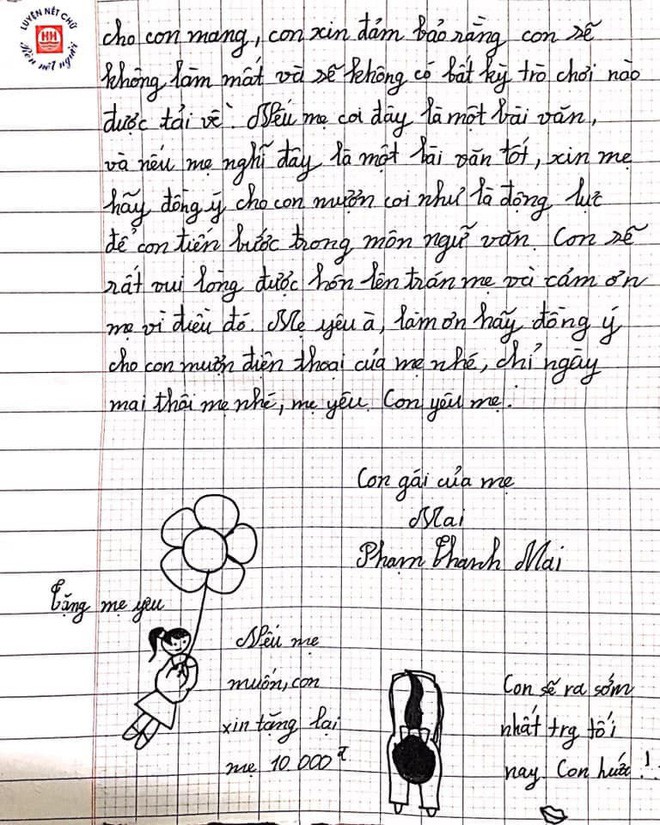 LUYỆN NÉT CHỮ
HH
Rèn nết người
cho con mang, con xin đảm bảo rằng con sẽ
không làm mất và sẽ không có bất kỳ trò chơi nào
được tải về. Nếu mẹ coi đây là một bài văn,
và nếu mẹ nghĩ đây là một bài văn tốt, xin mẹ
hãy đồng ý cho con mượn coi như là động lực
để con tiến bước trong môn ngữ văn. Con sẽ
rất vui lòng được hôn lên trán mẹ và cảm ơn
mẹ vì điều đó. Mẹ yêu à, làm ơn hãy đồng ý
cho con mượn điện thoại của mẹ nhé, chỉ ngày
mai thôi mẹ nhé, mẹ yêu. Con yêu mẹ!
Con gái của mẹ
Mai
Phạm Thanh Mai
Tặng mẹ yêu
Nếu mẹ
muốn, con
xin tặng lại
mẹ 10.000đ
Con sẽ ra sớm
nhất trg tối
nay. Con hứa!